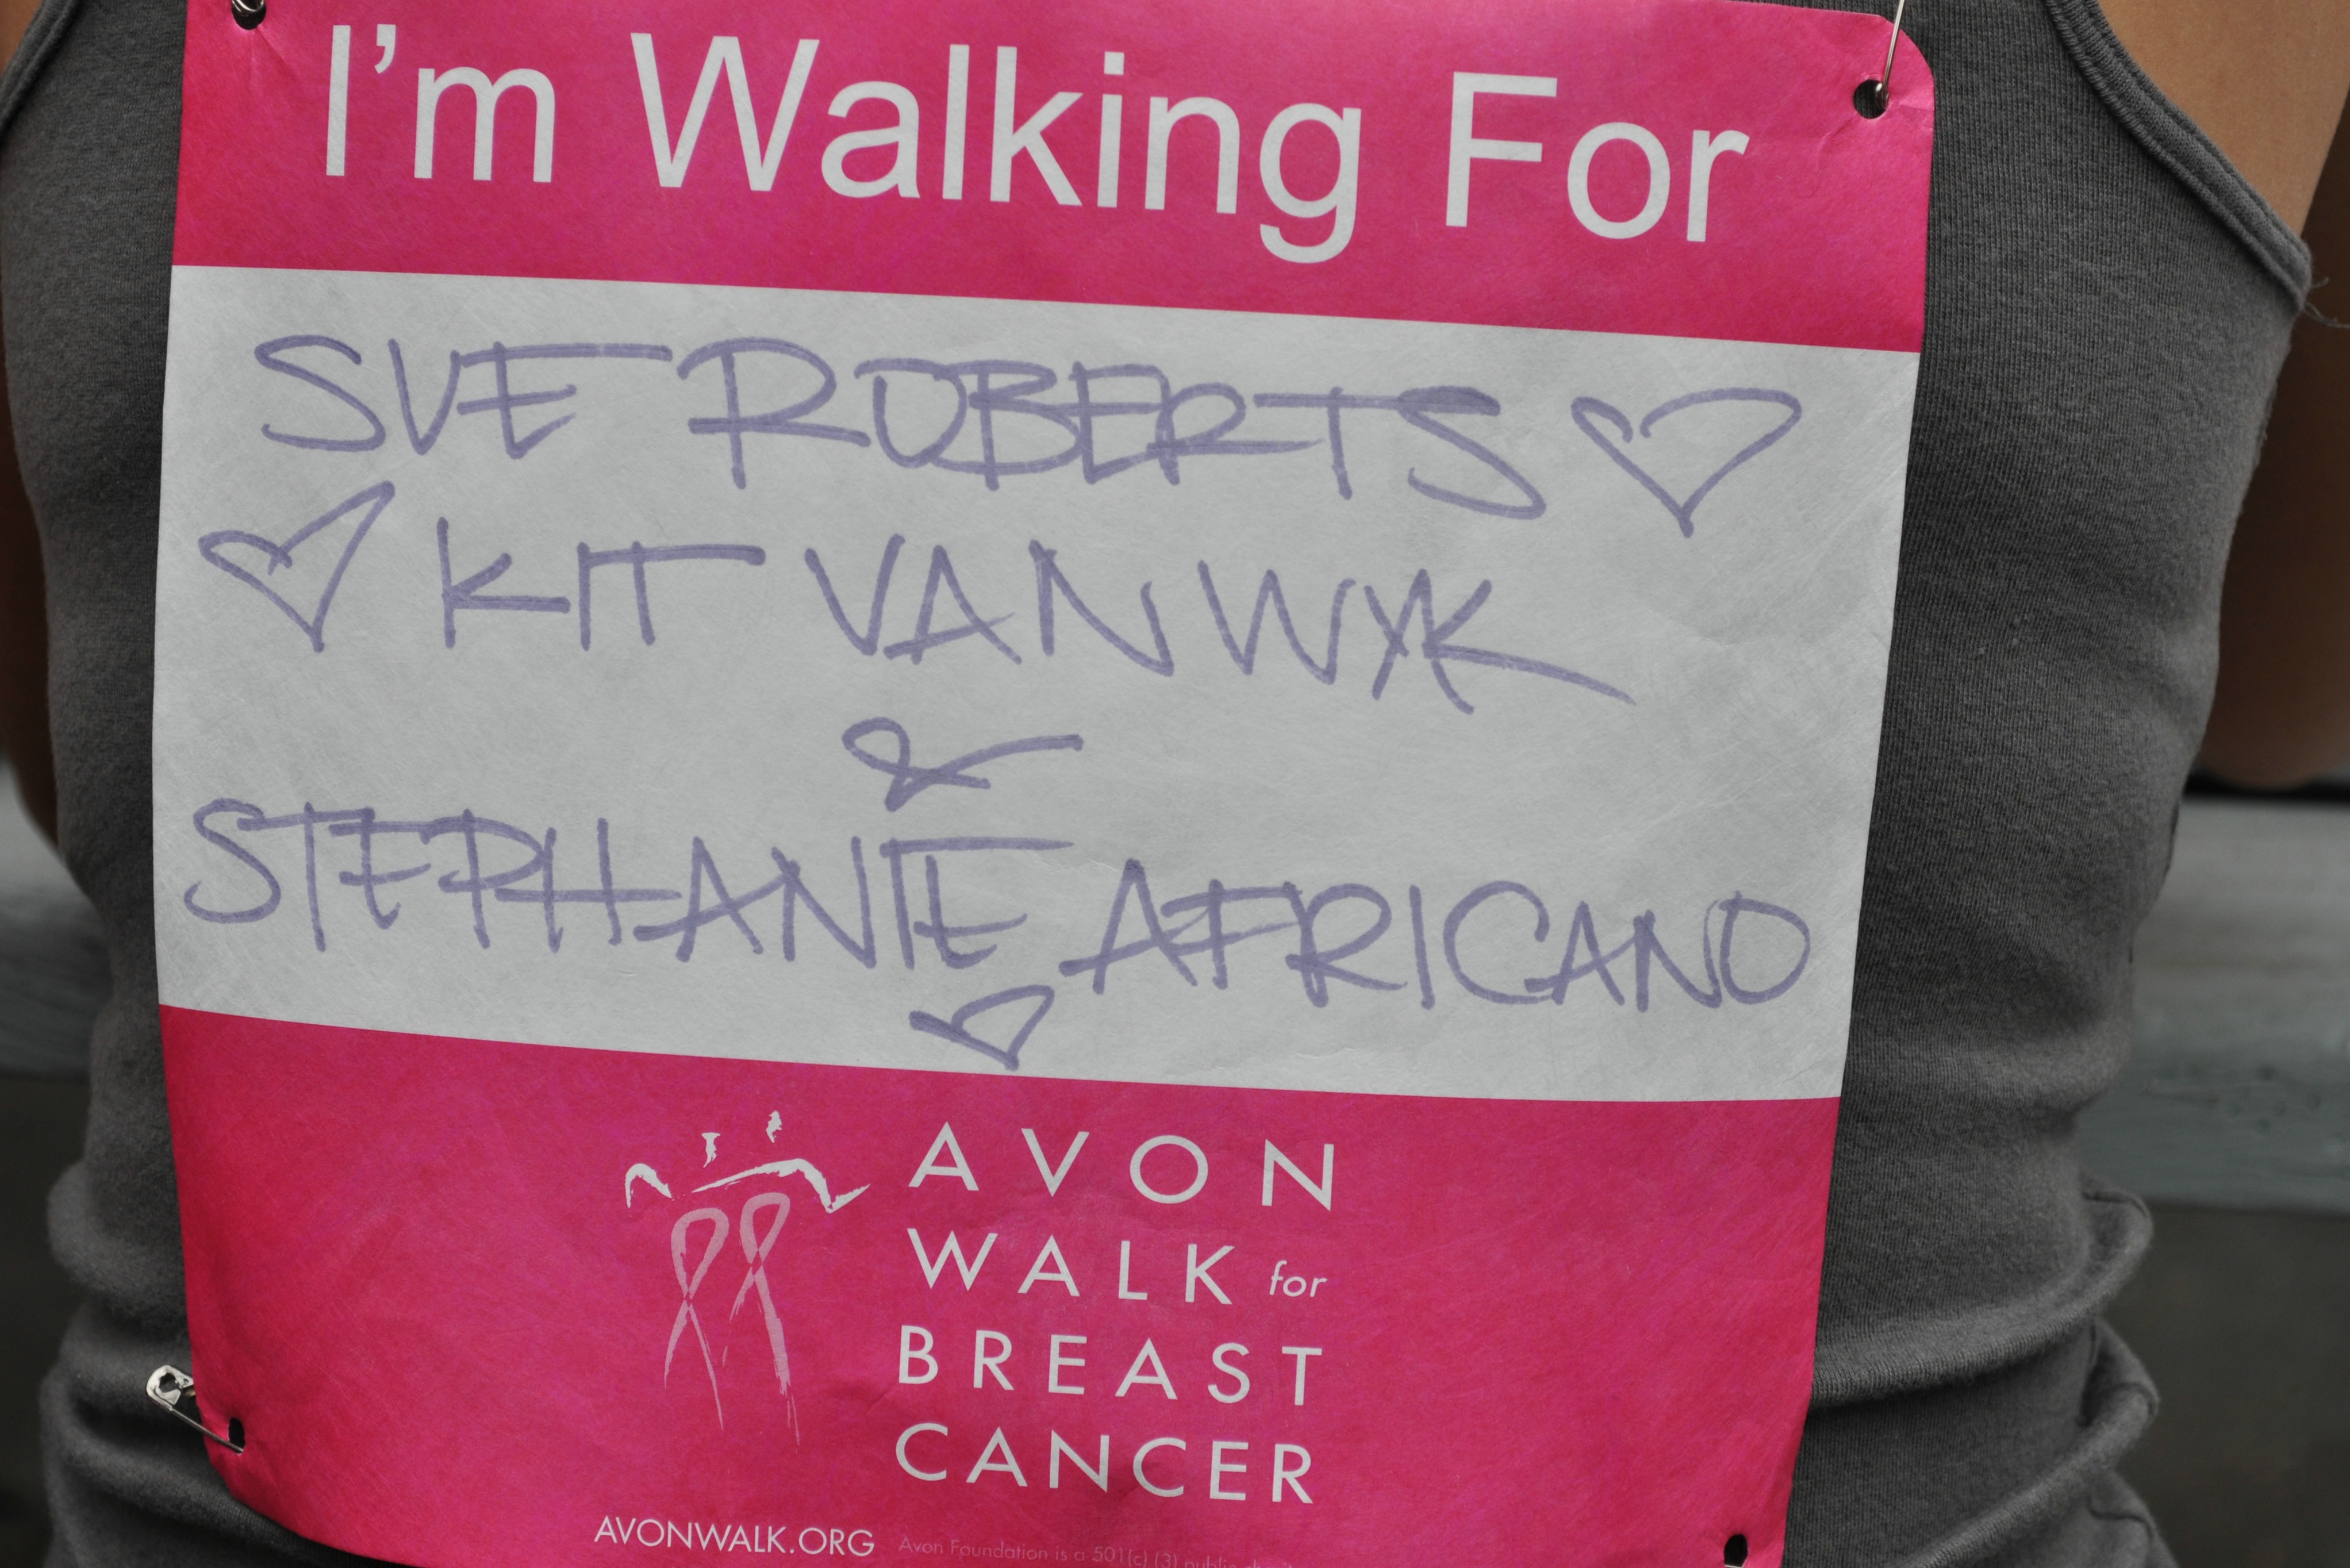 I'm Walking For
SUE ROBERTS ♡
♡ KIT VAN WYK
&
STEPHANIE AFRICANO
♡
AVON
WALK for
BREAST
CANCER
AVONWALK.ORG Avon Foundation is a 501(c) (3) public